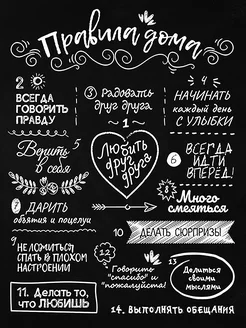 Правила дома
1
Любить
друг
друга
2
ВСЕГДА
ГОВОРИТЬ
ПРАВДУ
3 Радовать
друг друга
4
НАЧИНАТЬ
каждый день
С УЛЫБКИ
5
Верить
в себя
6
ВСЕГДА
ИДТИ
ВПЕРЁД!
7 ДАРИТЬ
объятия и поцелуи
8 Много
смеяться
9 НЕ ЛОЖИТЬСЯ
СПАТЬ В ПЛОХОМ
НАСТРОЕНИИ
10
ДЕЛАТЬ СЮРПРИЗЫ
11. Делать то,
что ЛЮБИШЬ
12
Говорить
"спасибо" и
"пожалуйста!"
13
Делиться
своими
мыслями
14. ВЫПОЛНЯТЬ ОБЕЩАНИЯ